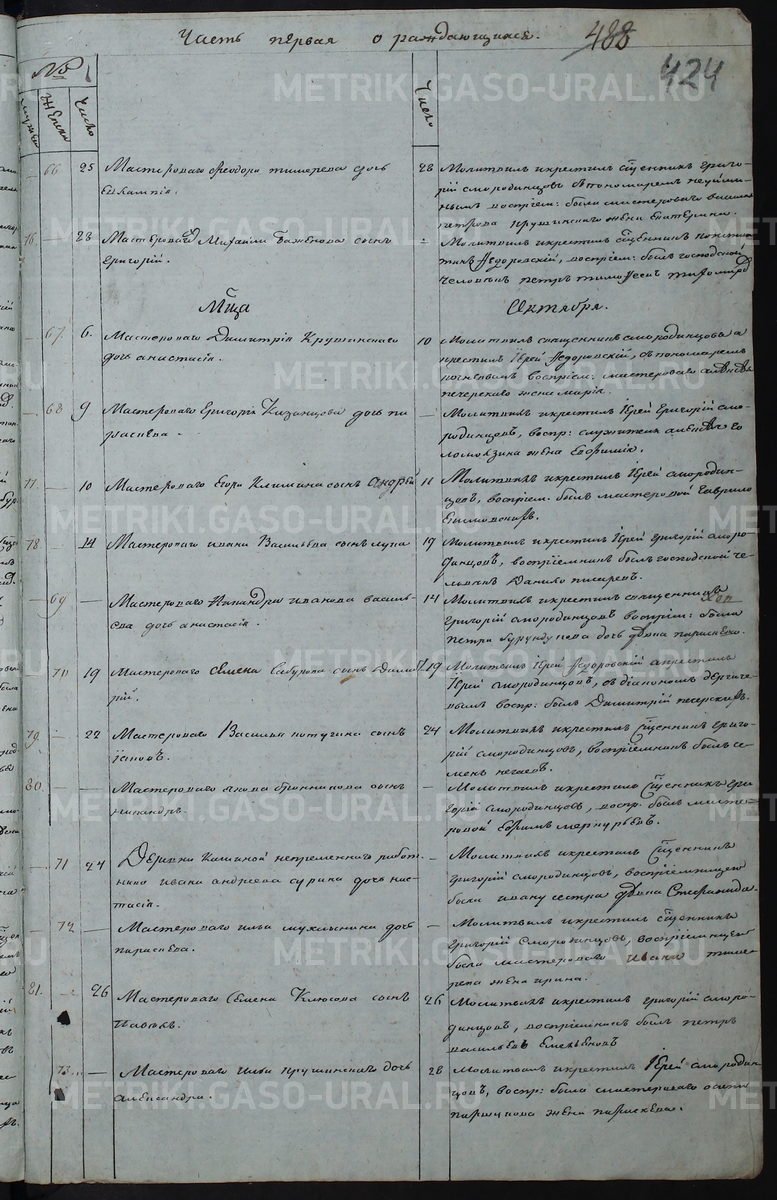 Часть первая о раждающихся.
488
424
№
Мужеска
Женска
Число
Число
66 25 Мастероваго Феодора дочь
Евлампия.
28 Молитвилъ и крестилъ Священникъ Григо-
рій Смородинцовъ съ пономаремъ
воспріем: была мастероваго
Петрова Крушинскаго жена Екатерина.
76. 28 Мастероваго Михаила Баженова сынъ
Григорій.
Молитвилъ и крестилъ Священникъ
Ѳедоровскій, воспріем: былъ господской
человѣкъ Петръ Тимофеевъ
Мѣсяца
Октября.
67. 6. Мастероваго Димитрія Крушинскаго
дочь Анастасія.
10 Молитвилъ священникъ Смородинцовъ а
крестилъ Іерей Ѳедоровскій, съ пономаремъ
воспріем: мастероваго
Печерскаго жена Марія.
68 9 Мастероваго Григорія Казанцова дочь Па
раскева.
Молитвилъ и крестилъ Іерей Григорій Смо-
родинцовъ, воспр: служителя Алексѣя
жена Евфимія.
77. 10 Мастероваго Егора Климина сынъ Андрей
11 Молитвилъ и крестилъ Іерей Смородин-
цовъ, воспріем. былъ мастеровой Гаврило
78 14 Мастероваго Ивана Васильева сынъ Лука
19 Молитвилъ и крестилъ Іерей Григорій Смо-
динцовъ, воспріемникъ былъ господской че-
ловѣкъ Данило Писаревъ.
69 Мастероваго Никандра Иванова Василь-
ева дочь Анастасія.
14 Молитвилъ и крестилъ священникъ
Григорій Смородинцовъ воспріем: была
Петра Бурундукова дочь дѣвка Параскева.
70 19 Мастероваго Семена Сабурова сынъ Дими
трій.
19 Молитвилъ Іерей Ѳедоровскій а крестилъ
Іерей Смородинцовъ, съ діакономъ
воспр: былъ Димитрій Печерскій.
79. 22 Мастероваго Василья Потугина сынъ
Іаковъ.
24 Молитвилъ и крестилъ Священникъ Григо-
рій Смородинцовъ, воспріемникъ былъ Се-
менъ
80. Мастероваго Якова Бронникова сынъ
Никандръ.
Молитвилъ и крестилъ Священникъ Гри
горій Смородинцовъ, воспр. былъ масте-
ровой Ефимъ Меркурьевъ.
71 24 Деревни Каминой непременнаго работ-
ника Ивана Андреева Сурина дочь Нас-
тасія.
Молитвилъ и крестилъ Священникъ
Григорій Смородинцовъ, воспріемницею
была Ивану сестра дѣвка Стефанида.
72 Мастероваго Ильи Мухлынина дочь
Параскева.
Молитвилъ и крестилъ Священникъ
Григорій Смородинцовъ, воспріемницею
была мастероваго Ивана
жена Ирина.
81. 26 Мастероваго Семена Клюсова сынъ
Павелъ.
26 Молитвилъ и крестилъ Григорій Сморо-
динцовъ, воспріемникъ былъ Петръ
Васильевъ Емельяновъ
73. Мастероваго Ильи Крушинскаго дочь
Александра.
28 Молитвилъ и крестилъ Іерей Смородин
цовъ, воспр: была мастероваго Осипа
Паршукова жена Параскева.
METRIKI.GASO-URAL.RU